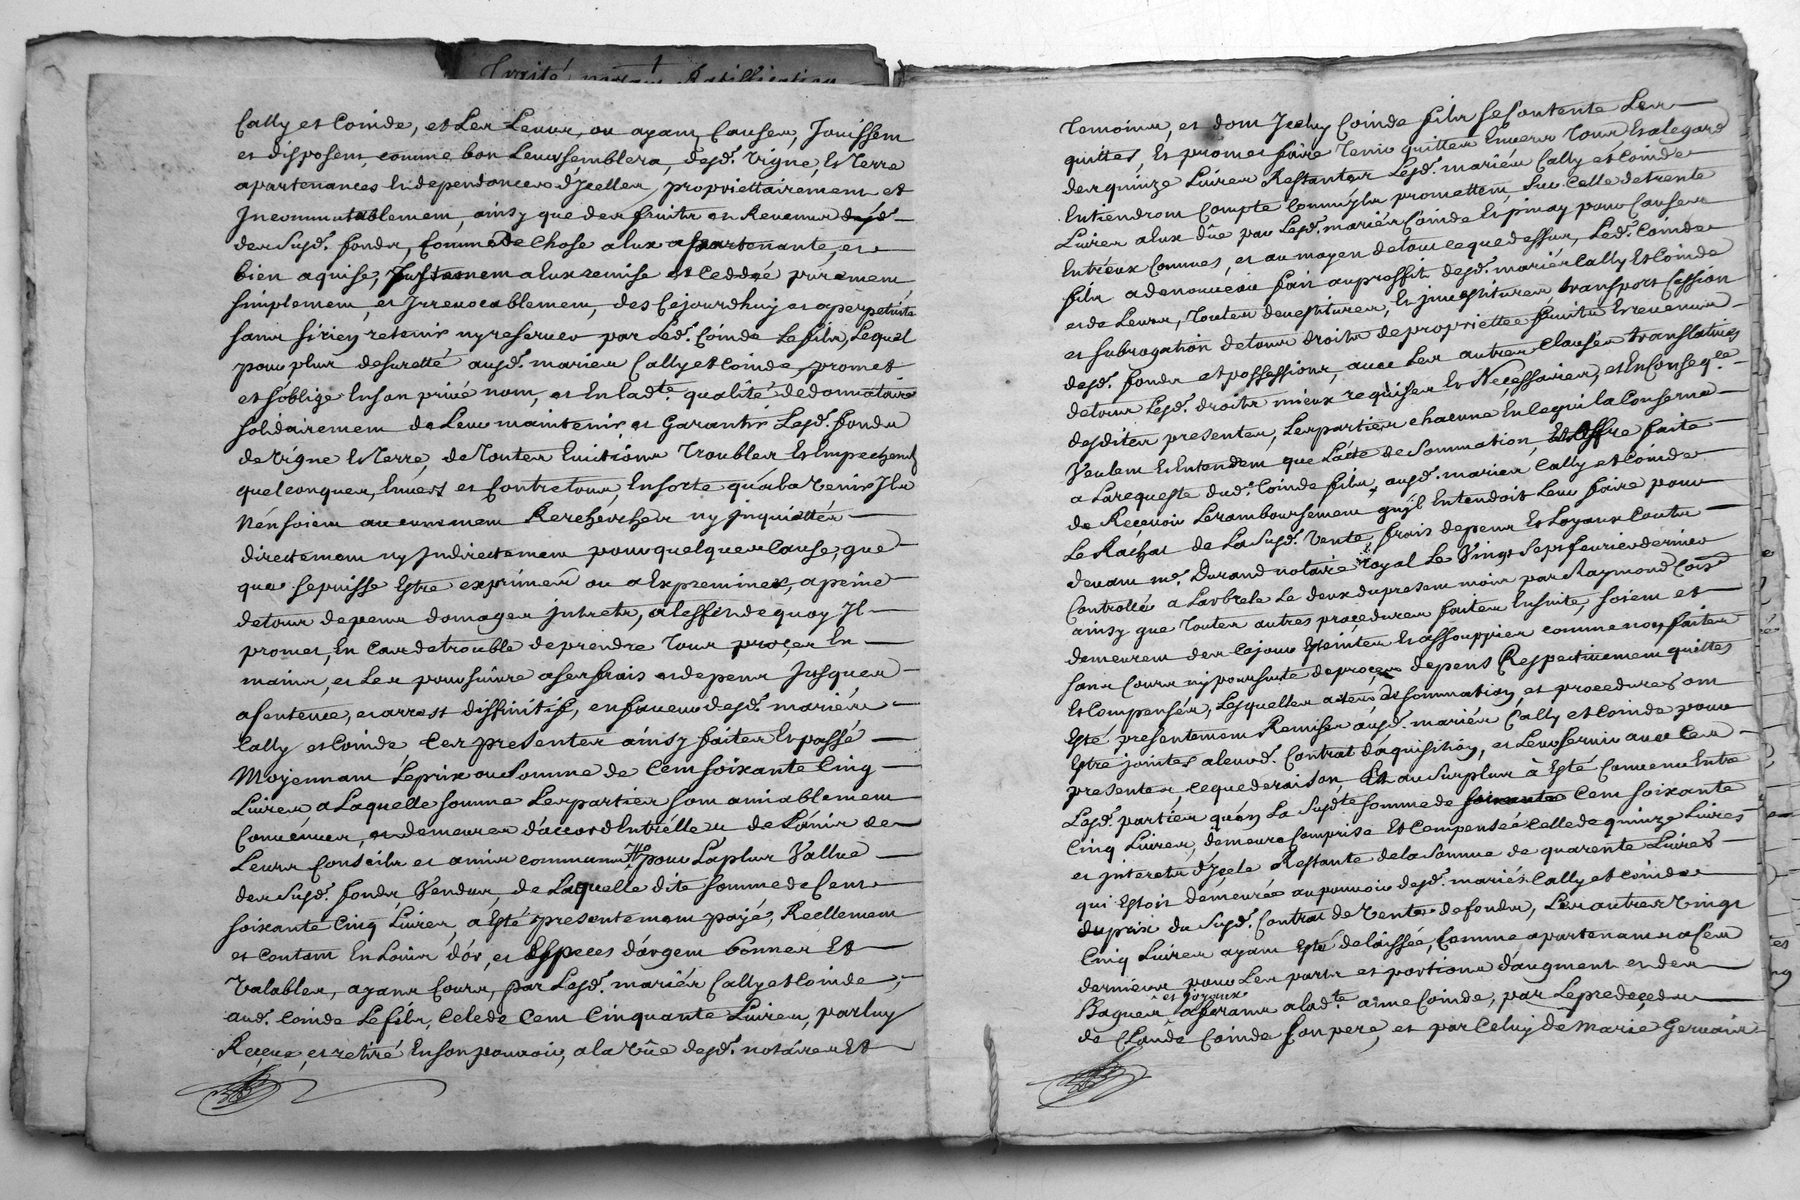 Traité portant Ratiffication
Cally et Coinde, et Les Leurs, ou ayant Causes, Jouissent
et disposent comme bon Leur semblera, desd. vigne, Et Terre
apartenances Et dependances d'Jcelles, proprietairement et
Jncommutablement, ainsy que des fruits et Revenus desd.
des Susd. fonds, Comme de Chose a Eux apartenante, et
bien aquise, Justement a Eux remise et Ceddéé púrement
simplement, et Jrrevocablement, des Cejourdhuy et aperpetuité
sans si rien retenir ny reserver par Led. Coinde Le fils, Lequel
pour plus de suretté ausd. mariés Cally et Coinde, promet
et s'oblige En son privé nom, et En lad.te qualité de donnataire
solidairement de Leur maintenir et Garantir Lesd. fonds
de Vigne Et Terre, de Toutes Evictions Troubles Et Empechemts
quelconques, Envers et Contre tous, En sorte qu'a la venir Jls
N'En soient aucunement Recherchés ny Jnquiettés
directement ny Jndirectement pour quelques Causes, que
que se puisse Estre exprimér ou a Exprimer, a peine
de tous depens domages Jntrets, a L'effin de quoy Jl
promet, En Cas de trouble de prendre Tous procés En
mains, et Les poursuivre a ses frais et depens Jusques
a sentence, et arrest diffinitif, en faveur desd. mariés
Cally et Coinde Ces presentes ainsy faites Et passé
Moyennant Le prix ou Somme de Cent soixante Cinq
Livres a Laquelle somme Les parties sont amiablement
Convenues, et demeurés d'accord Entr'elles de L'avis de
Leurs Conseils et amis communs pour La plus Vallue
des Susd. fonds Vendus, de Laquelle dite somme de Cent
soixante Cinq Livres, a Esté presentement payé, Reellement
et Contant En Louis d'or, et Especes d'argent bonnes Et
Valables, ayant Cours, par Lesd. mariés Cally et Coinde,
aud. Coinde Le fils, Celle de Cent Cinquante Livres, par luy
Reçeue, et retiré En son pouvoir, a la vûe desd. notaires Et
Temoins, et dont Jceluy Coinde fils se Contente Les
quittes, Et promet faire Tenir quittes Envers Tous Et alegard
des quinze Livres Restantes Lesd. mariés Cally et Coinde
En tiendront Compte Comm'ils promettent sur Celle de trente
Livres a Eux dûe par Lesd. mariés Coinde Espinay pour Causes
Entr'eux Connues, et au moyen de tout ce que dessus, Led. Coinde
fils a de nouveau fait au proffit desd. mariés Cally Et Coinde
et de Leurs, Toutes devestitures, Et jnvestitures, transport Cession
et subrogation de tous droits de propriettée fruits Et revenus
desd. fonds et possessions, avec Les autres Clauses translatives
de tous Lesd. droits mieux requises Et Neçessaires, et En Conseq.ce
desdites presentes, Les parties chacune En ce qui la Conserne
Veulent Et Entendent que L'acte de Sommation, Et offre faite
a La requeste dud. Coinde fils, ausd. mariés Cally et Coinde
de Reçevoir Le ramboursement qu'jl Entendoit Leur faire pour
Le Rachat de La Susd. Vente, frais depens Et Loyaux Couts
devant m.e Durand notaire royal Le Vingt Sept fevrier dernier
Controllée a Larbrele Le deux du present mois par Raymond
ainsy que Toutes autres procedures faites Ensuite, soient et
demeurent des ce jour Esteintes Et assouppies comme non faites
sans Cours ny poursuite de procés depens Respectivement quittes
Et Compensés, Lesquelles actes de sommation et procedures ont
Esté presentement Remises ausd. mariés Cally et Coinde pour
Estre jointes a leurd. Contrat d'aquisition, et Leur servir avec Ces
presentes, ce que de raison, Et au Surplus à Esté Convenu Entre
Lesd. parties qu'en La Susd.te somme de soixante Cent soixante
Cinq Livres, demeure Comprise Et Compensée Celle de quinze Livres
et jnterets d'Jcele Restante de la Somme de quarente Livres
qui Estoit demeurée au pouvoir desd. mariés Cally et Coinde
du prix du Susd. Contrat de Vente de fonds, Les autres Vingt
Cinq Livres ayant Esté delaissée, Comme apartenants a Ces
derniers pour Les parts et portions d'augment et des
Bagues et Joyaux aferants a lad.te aime Coinde, par Le predeçedes
de Claude Coinde son pere, et par Celuy de Marie Gervais